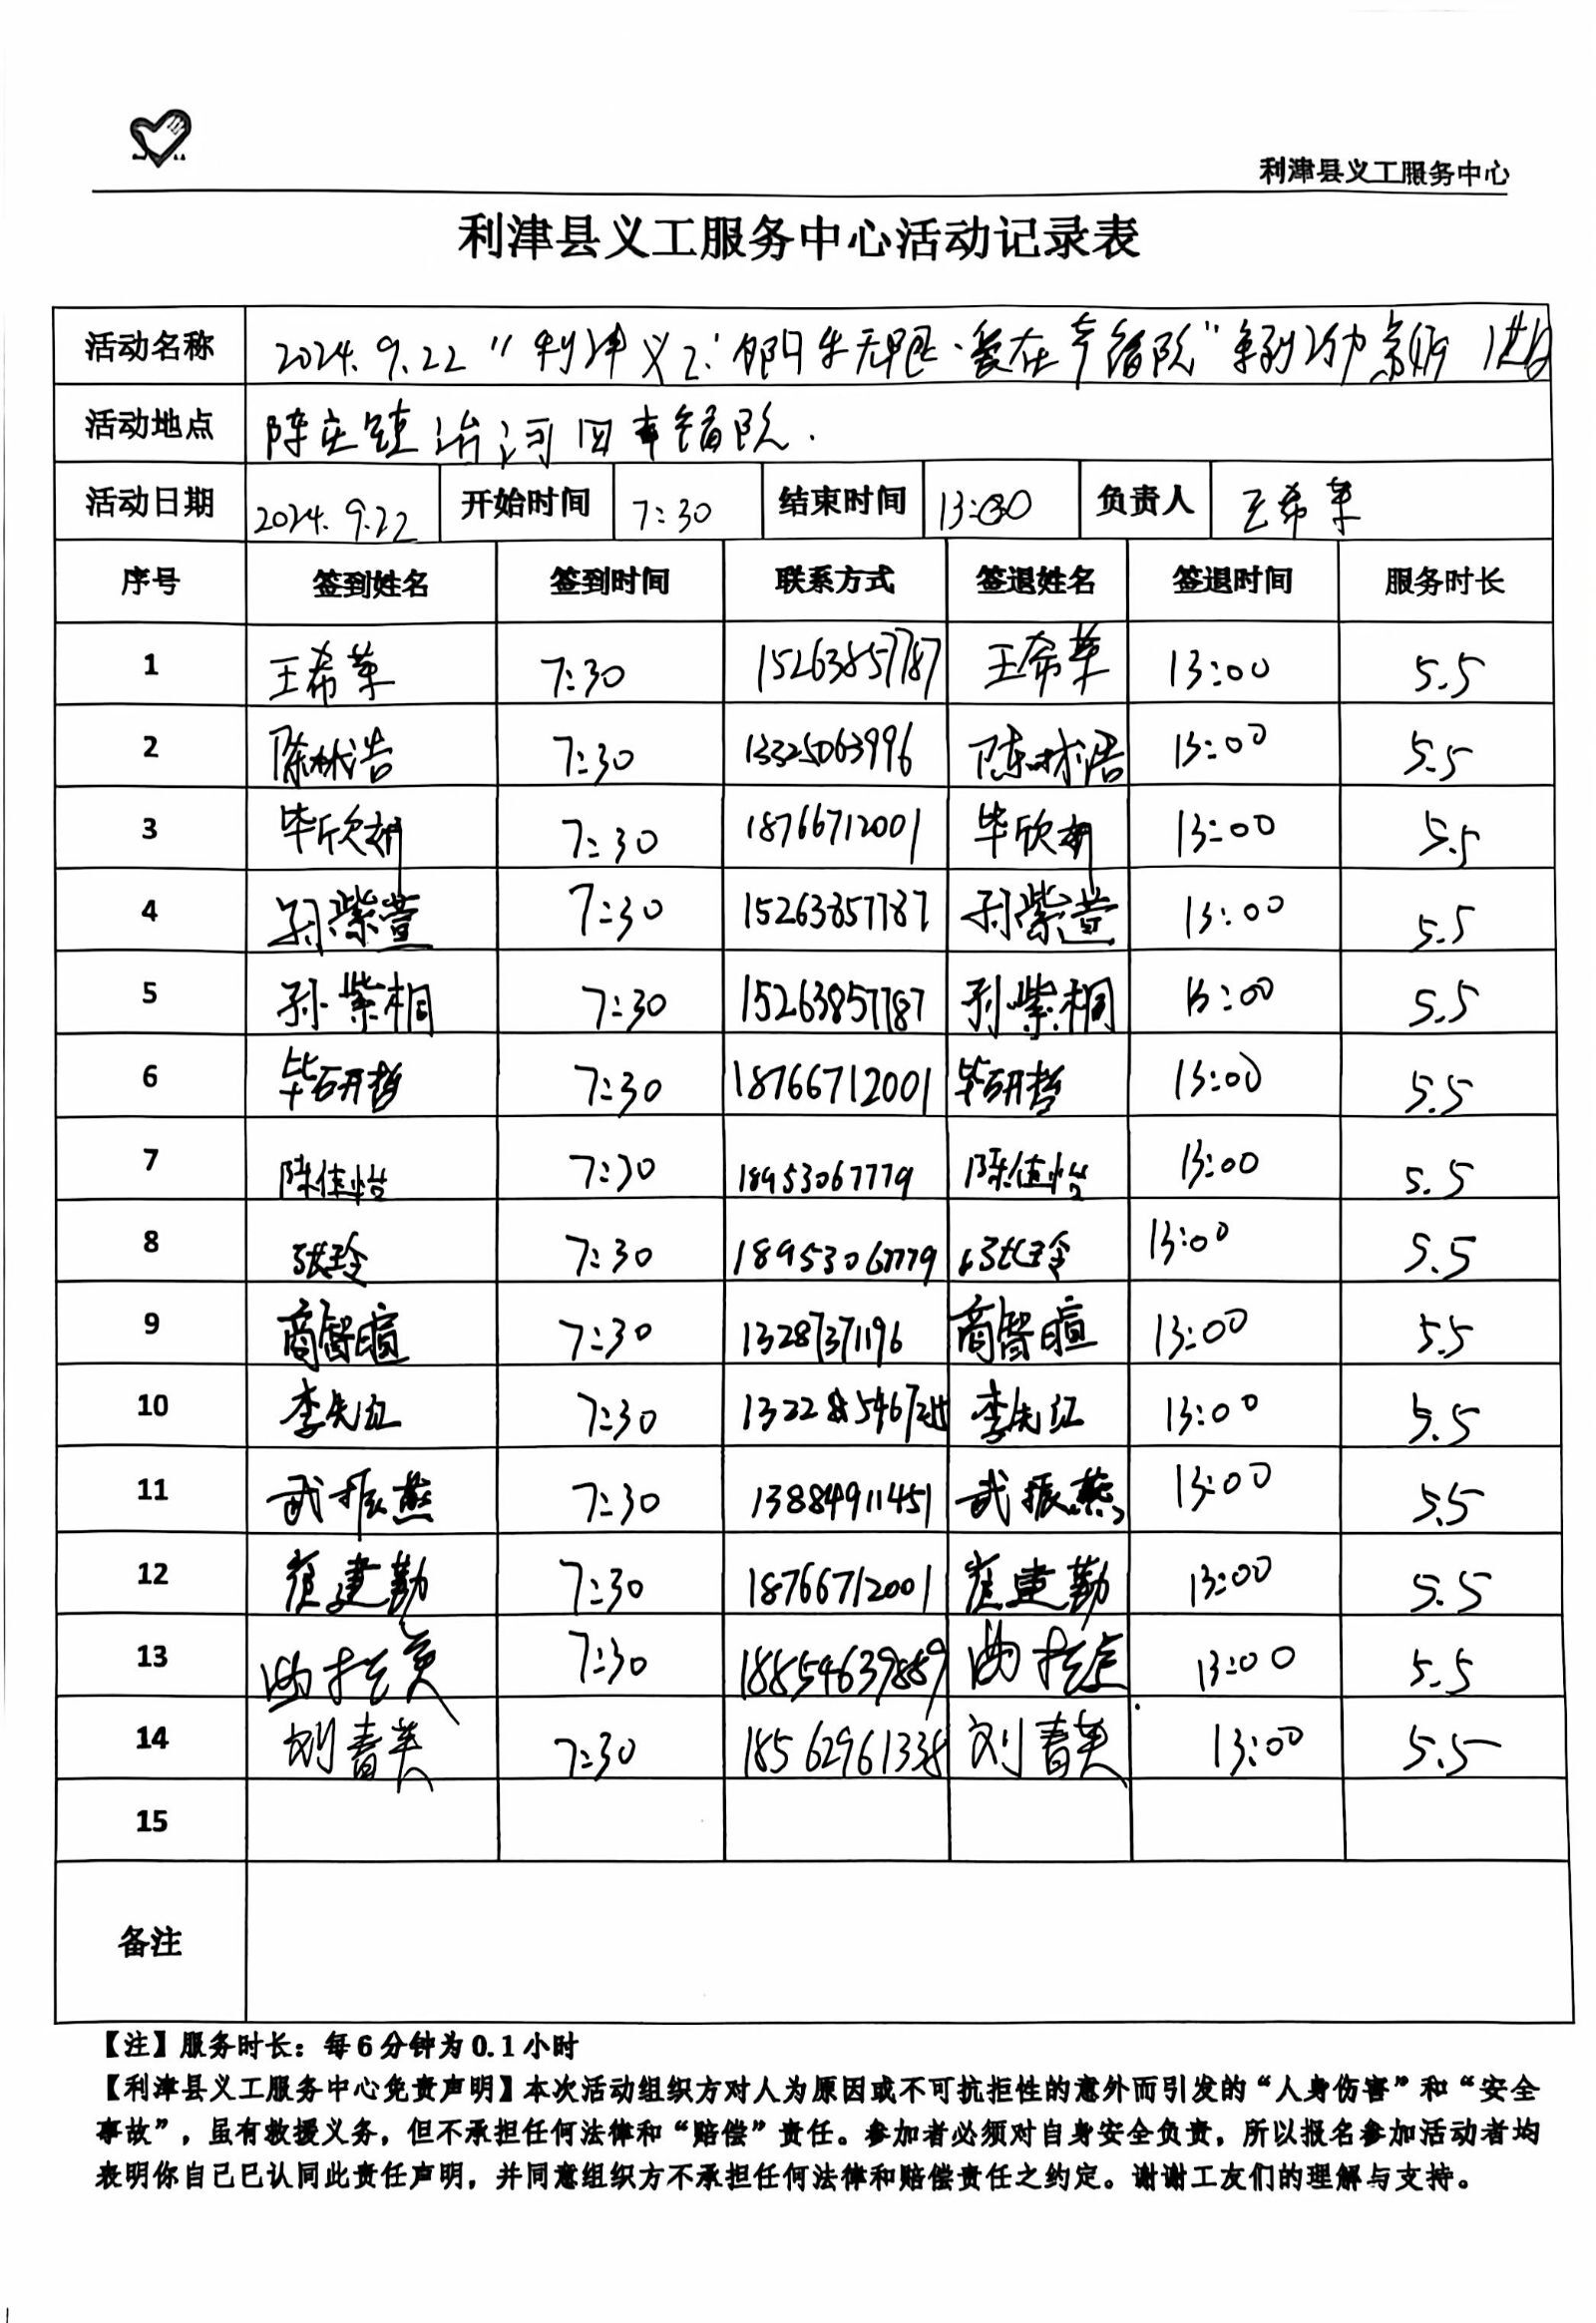 利津县义工服务中心
利津县义工服务中心活动记录表
活动名称 2024.9.22 "利津义工·夕阳无限·爱在幸福院"系列
活动地点 陈庄镇 河 幸福院.
活动日期 2024.9.22 开始时间 7:30 结束时间 13:00 负责人 王希苹
序号 签到姓名 签到时间 联系方式 签退姓名 签退时间 服务时长
1 王希苹 7:30 15263857787 王希苹 13:00 5.5
2 陈林浩 7:30 13325063996 陈林浩 13:00 5.5
3 毕欣妍 7:30 18766712001 毕欣妍 13:00 5.5
4 孙紫萱 7:30 15263857787 孙紫萱 13:00 5.5
5 孙紫桐 7:30 15263857787 孙紫桐 13:00 5.5
6 毕研哲 7:30 18766712001 毕研哲 13:00 5.5
7 陈佳怡 7:30 18953067779 陈佳怡 13:00 5.5
8 张玲 7:30 18953067779 张玲 13:00 5.5
9 商智暄 7:30 13287371196 商智暄 13:00 5.5
10 李先红 7:30 李先红 13:00 5.5
11 武振燕 7:30 13884911451 武振燕 13:00 5.5
12 崔建勤 7:30 18766712001 崔建勤 13:00 5.5
13 7:30 18854639889 13:00 5.5
14 刘春英 7:30 18562961338 刘春英 13:00 5.5
15
备注
【注】服务时长：每6分钟为0.1小时
【利津县义工服务中心免责声明】本次活动组织方对人为原因或不可抗拒性的意外而引发的“人身伤害”和“安全
事故”，虽有救援义务，但不承担任何法律和“赔偿”责任。参加者必须对自身安全负责，所以报名参加活动者均
表明你自己已认同此责任声明，并同意组织方不承担任何法律和赔偿责任之约定。谢谢工友们的理解与支持。